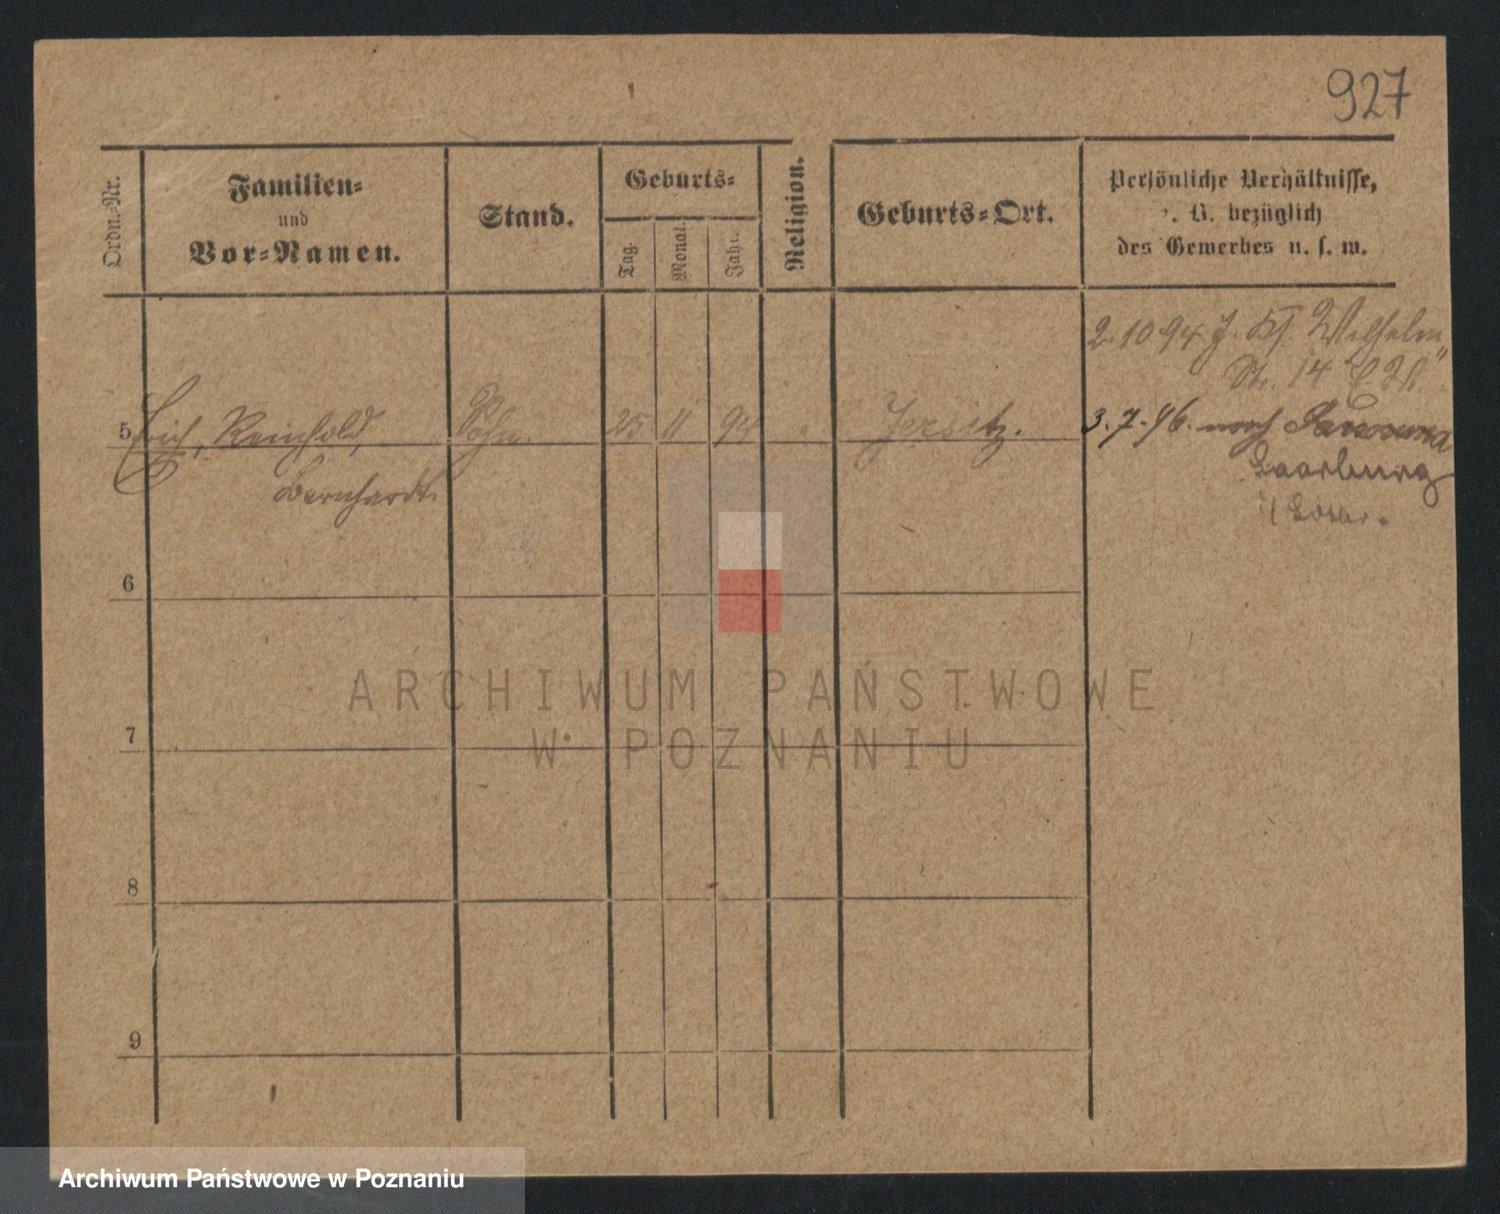 927
Ordn.-Nr.
Familien-
und
Vor-Namen.
Stand.
Geburts-
Tag.
Monat.
Jahr.
Religion.
Geburts-Ort.
Persönliche Verhältnisse,
z. B. bezüglich
des Gewerbes u. s. w.
2.10 94 J. Kl. Wilhelm
Str. 14
5 Erich, Reinhold, Sohn. 25 11 94 Jersitz. 3.7.96. nach
Bernhardt Saarburg
i/ Lothr.
6
7
8
9
ARCHIWUM PAŃSTWOWE
W POZNANIU
Archiwum Państwowe w Poznaniu